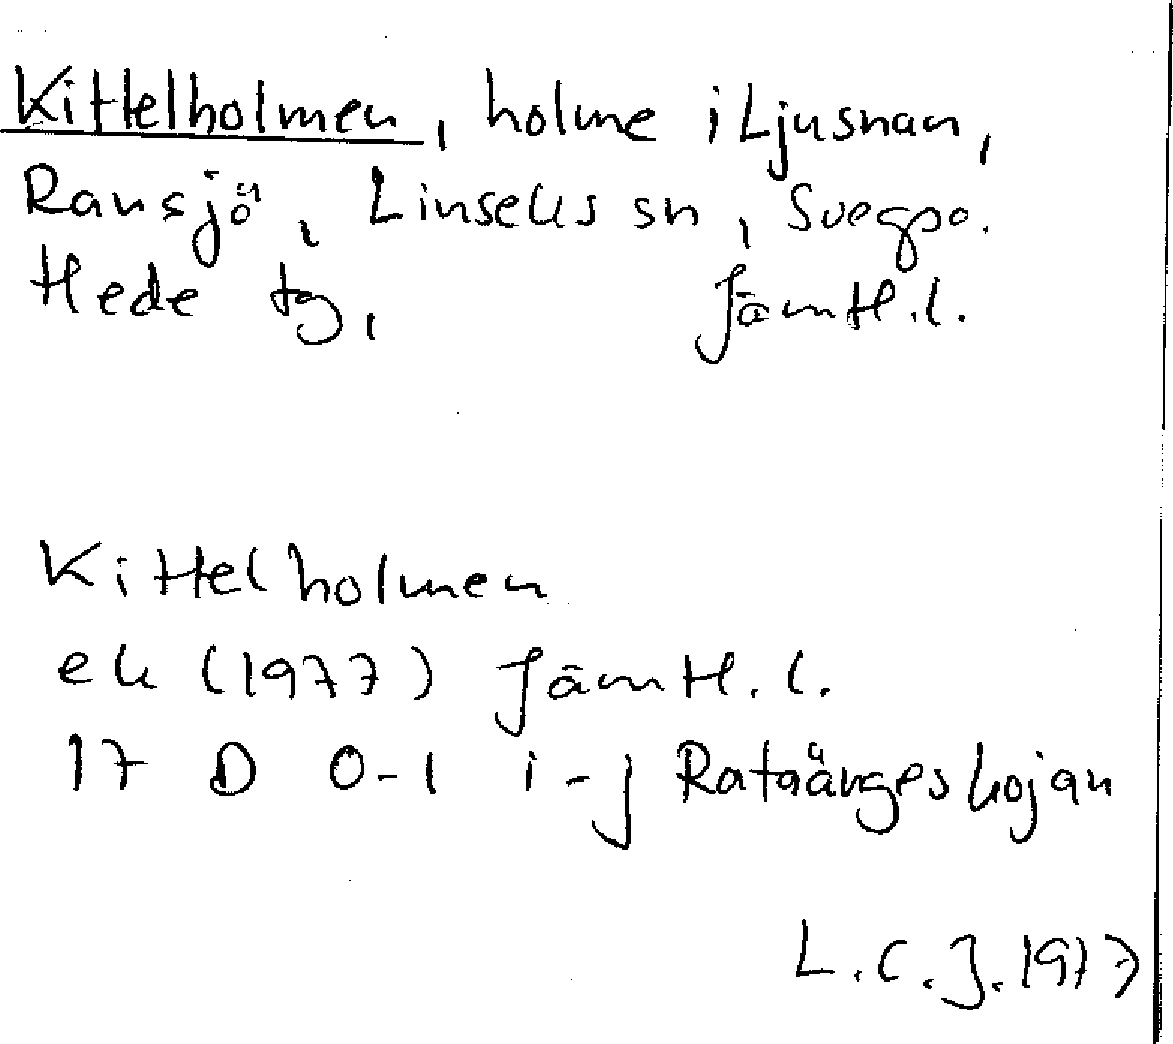 Kittelholmen, holme i Ljusnan,
Ransjö, Linsells sn, Svegs po.
Hede tg, Jämtl. l.
Kittelholmen
ek (1977) Jämtl. l.
17 D 0-1 i-j
L.C.J. 1977